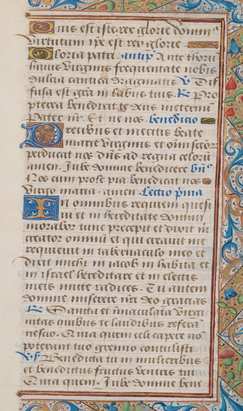 Quis est iste rex glorie dominus
virtutum ipse est rex glorie
Gloria patri. antiph. Ante thorum
huius virginis frequentate nobis
dulcia cantica dragmatis. V. Dif
fusa est gratia in labiis tuis. R. Pro
pterea benedixit te deus in eternum
Pater noster. Et ne nos. benedictio
Precibus et meritis beate
marie virginis et omnium sanctorum
perducat nos dominus ad regna celorum
amen. Jube domne benedicere. ben.
Nos cum prole pia benedicat nos
virgo maria. amen. Lectio prima
In omnibus requiem quesi
vi et in hereditate domini
morabor tunc precepit et dixit michi
creator omnium et qui creavit me
requievit in tabernaculo meo et
dixit michi in iacob in habita et
in israel hereditare et in electis
meis mitte radices. Tu autem
domine miserere nostri. deo gracias
R. Sancta et immaculata virgi
nitas quibus te laudibus referam
nescio. Quia quem celi capere non
poterant tuo gremio contulisti
V. Benedicta tu in mulieribus
et benedictus fructus ventris tui
Quia quem. Jube domne bene